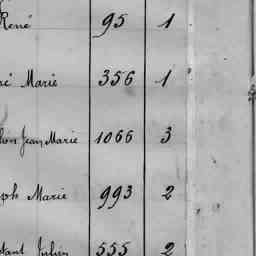 René 95 1
ré Marie 356 1
Jean Marie 1066 3
ph Marie 993 2
Julien 555 2